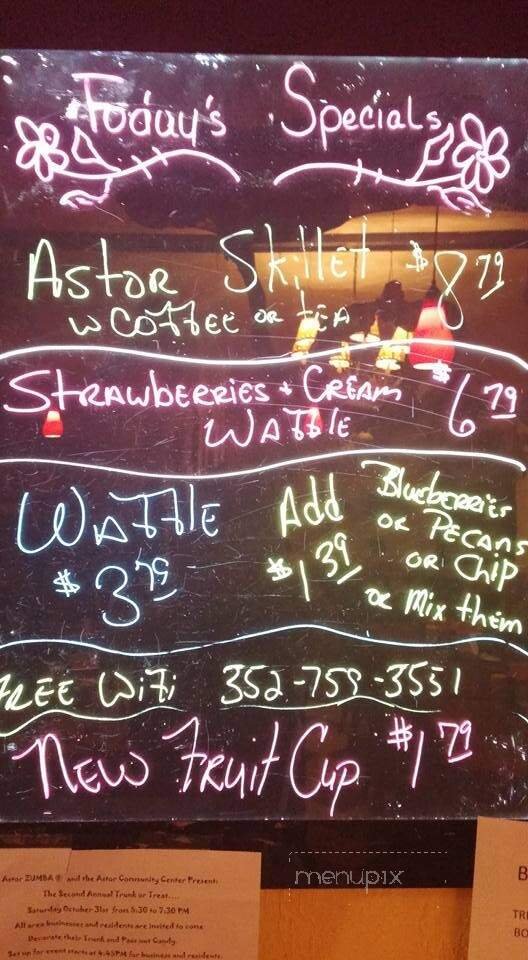 Today's Specials
Astor Skillet $8.79
w Coffee or tea
Strawberries + Cream $6.79
Waffle
Waffle $3.79
Add $1.39
Blueberries
or Pecans
or Chip
or Mix them
Free WiFi 352-759-3551
New Fruit Cup $1.79
Astor ZUMBA ® and the Astor Community Center Present:
The Second Annual Trunk or Treat....
Saturday October 31st from 5:30 to 7:30 PM
All area businesses and residents are invited to come
Decorate their Trunk and Pass out Candy.
Set up for event starts at 4:45PM for business and residents.
menupix
B
TRI
BO